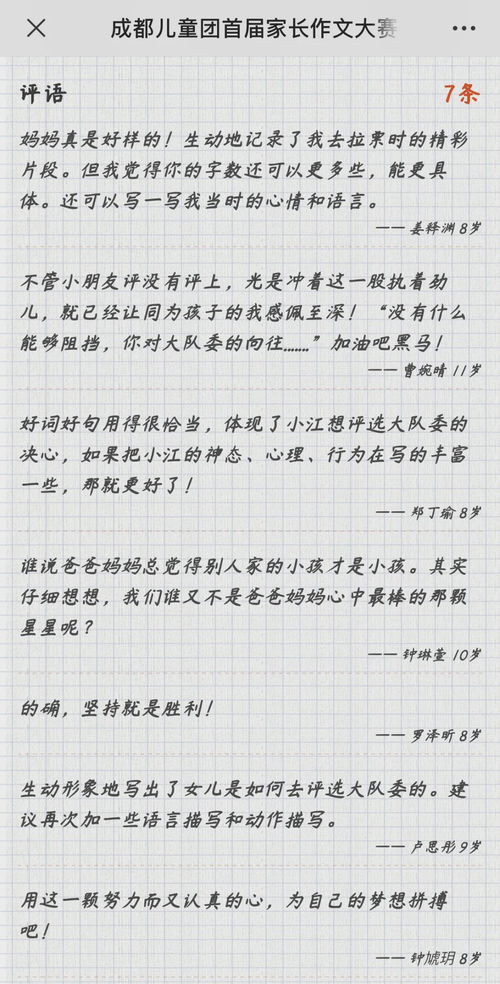 成都儿童团首届家长作文大赛
评语
7条
妈妈真是好样的！生动地记录了我去拉票时的精彩
片段。但我觉得你的字数还可以更多些，能更具
体。还可以写一写我当时的心情和语言。
—— 姜释渊 8岁
不管小朋友评没有评上，光是冲着这一股执着劲
儿，就已经让同为孩子的我感佩至深！“没有什么
能够阻挡，你对大队委的向往……”加油吧黑马！
—— 曹婉晴 11岁
好词好句用得很恰当，体现了小江想评选大队委的
决心，如果把小江的神态、心理、行为在写的丰富
一些，那就更好了！
—— 郑丁瑜 8岁
谁说爸爸妈妈总觉得别人家的小孩才是小孩。其实
仔细想想，我们谁又不是爸爸妈妈心中最棒的那颗
星星呢？
—— 钟琳萱 10岁
的确，坚持就是胜利！
—— 罗泽昕 8岁
生动形象地写出了女儿是如何去评选大队委的。建
议再次加一些语言描写和动作描写。
—— 卢思彤 9岁
用这一颗努力而又认真的心，为自己的梦想拼搏
吧！
—— 钟琥玥 8岁